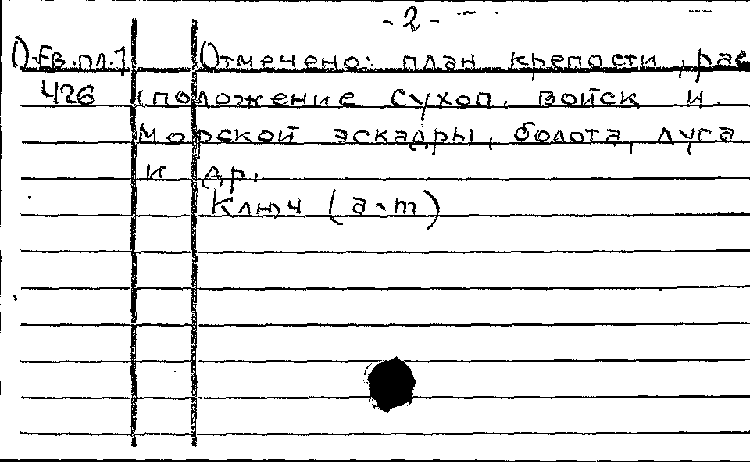 -2-
О-Ев.пл.1 Отмечено: план крепости, рас
426 положение сухоп. войск и
морской эскадры, болота, луга
и др.
Ключ (а-т)